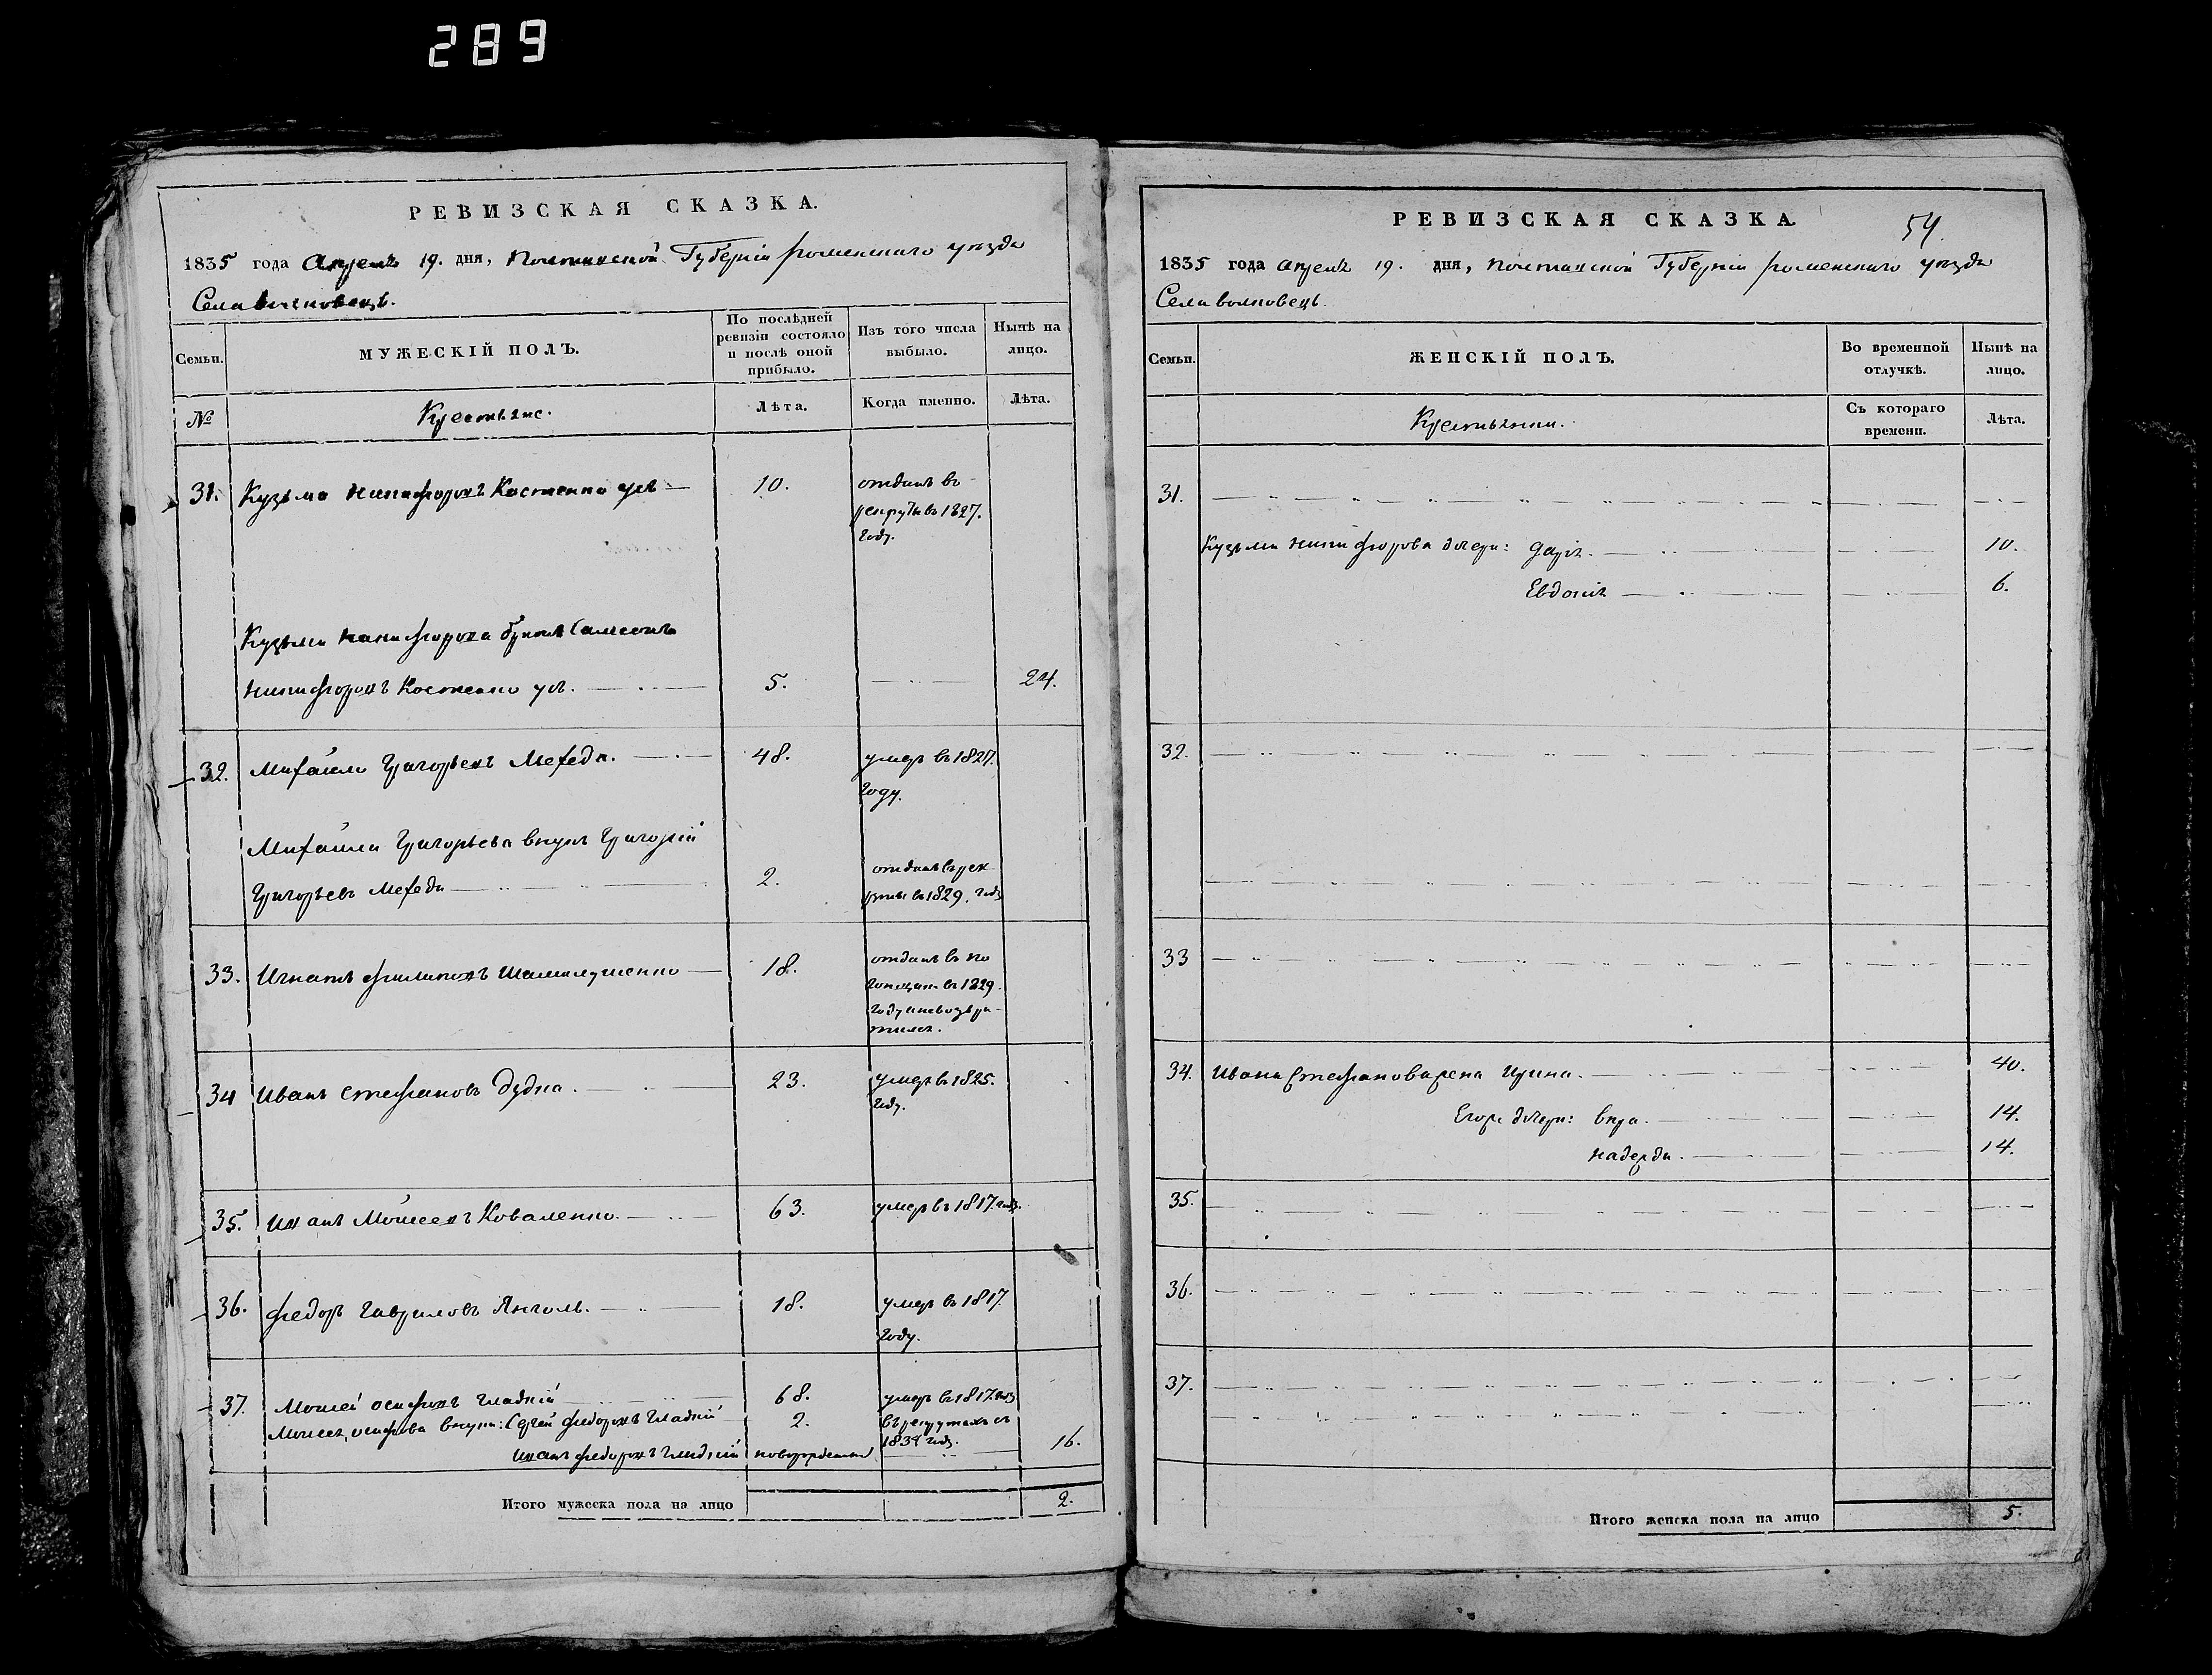 289
РЕВИЗСКАЯ СКАЗКА.
1835 года Апреля 19. дня, Полтавской Губернiи роменскаго уезда
Села волковецъ.
Семьи.
МУЖЕСКIЙ ПОЛЪ.
По послѣдней ревизiи состояло и послѣ оной прибыло.
Изъ того числа выбыло.
Нынѣ на лицо.
№
Крестьяне.
Лѣта.
Когда именно.
Лѣта.
31. Кузьма никифоровъ Костенко 10. отданъ въ
рекруты въ 1827.
году.
Кузьмы никифорова братъ Самсонъ
никифоровъ Костенко 5. 24.
32. Михаило Григорьевъ Мехеда. 48. умеръ въ 1827.
году.
Михаила Григорьева внукъ Григорiй
Григорьевъ Мехеда 2. отданъ въ рек
руты въ 1829. году
33. Игнатъ филиповъ 18. отданъ въ по
гонщики въ 1829.
году и невозвра-
тился.
34 Иванъ стефановъ Дудка. 23. умеръ въ 1825.
году.
35. Иванъ Моисеевъ Коваленко. 63. умеръ въ 1817. году.
36. федоръ гавриловъ Янголь. 18. умеръ въ 1817.
году.
37. Моисей осифовъ гладкiй 68. умеръ въ 1817. году
Моисея осифова внуки: Сергей федоровъ гладкiй 2. въ рекрутахъ съ
1834 году.
Иванъ федоровъ гладкiй новорожденный 16.
Итого мужеска пола на лицо 2.
РЕВИЗСКАЯ СКАЗКА.
54.
1835 года апреля 19. дня, полтавской Губернiи роменскаго уезда
Села волковецъ.
Семьи.
ЖЕНСКIЙ ПОЛЪ.
Во временной отлучкѣ.
Нынѣ на лицо.
Крестьянки.
Съ котораго времени.
Лѣта.
31.
Кузьмы никифорова дочери: Дарiя. 10.
Евдокiя 6.
32.
33
34. Ивана Стефанова жена Ирина. 40.
Егоже дочери: вера. 14.
надежда. 14.
35.
36.
37.
Итого женска пола на лицо 5.